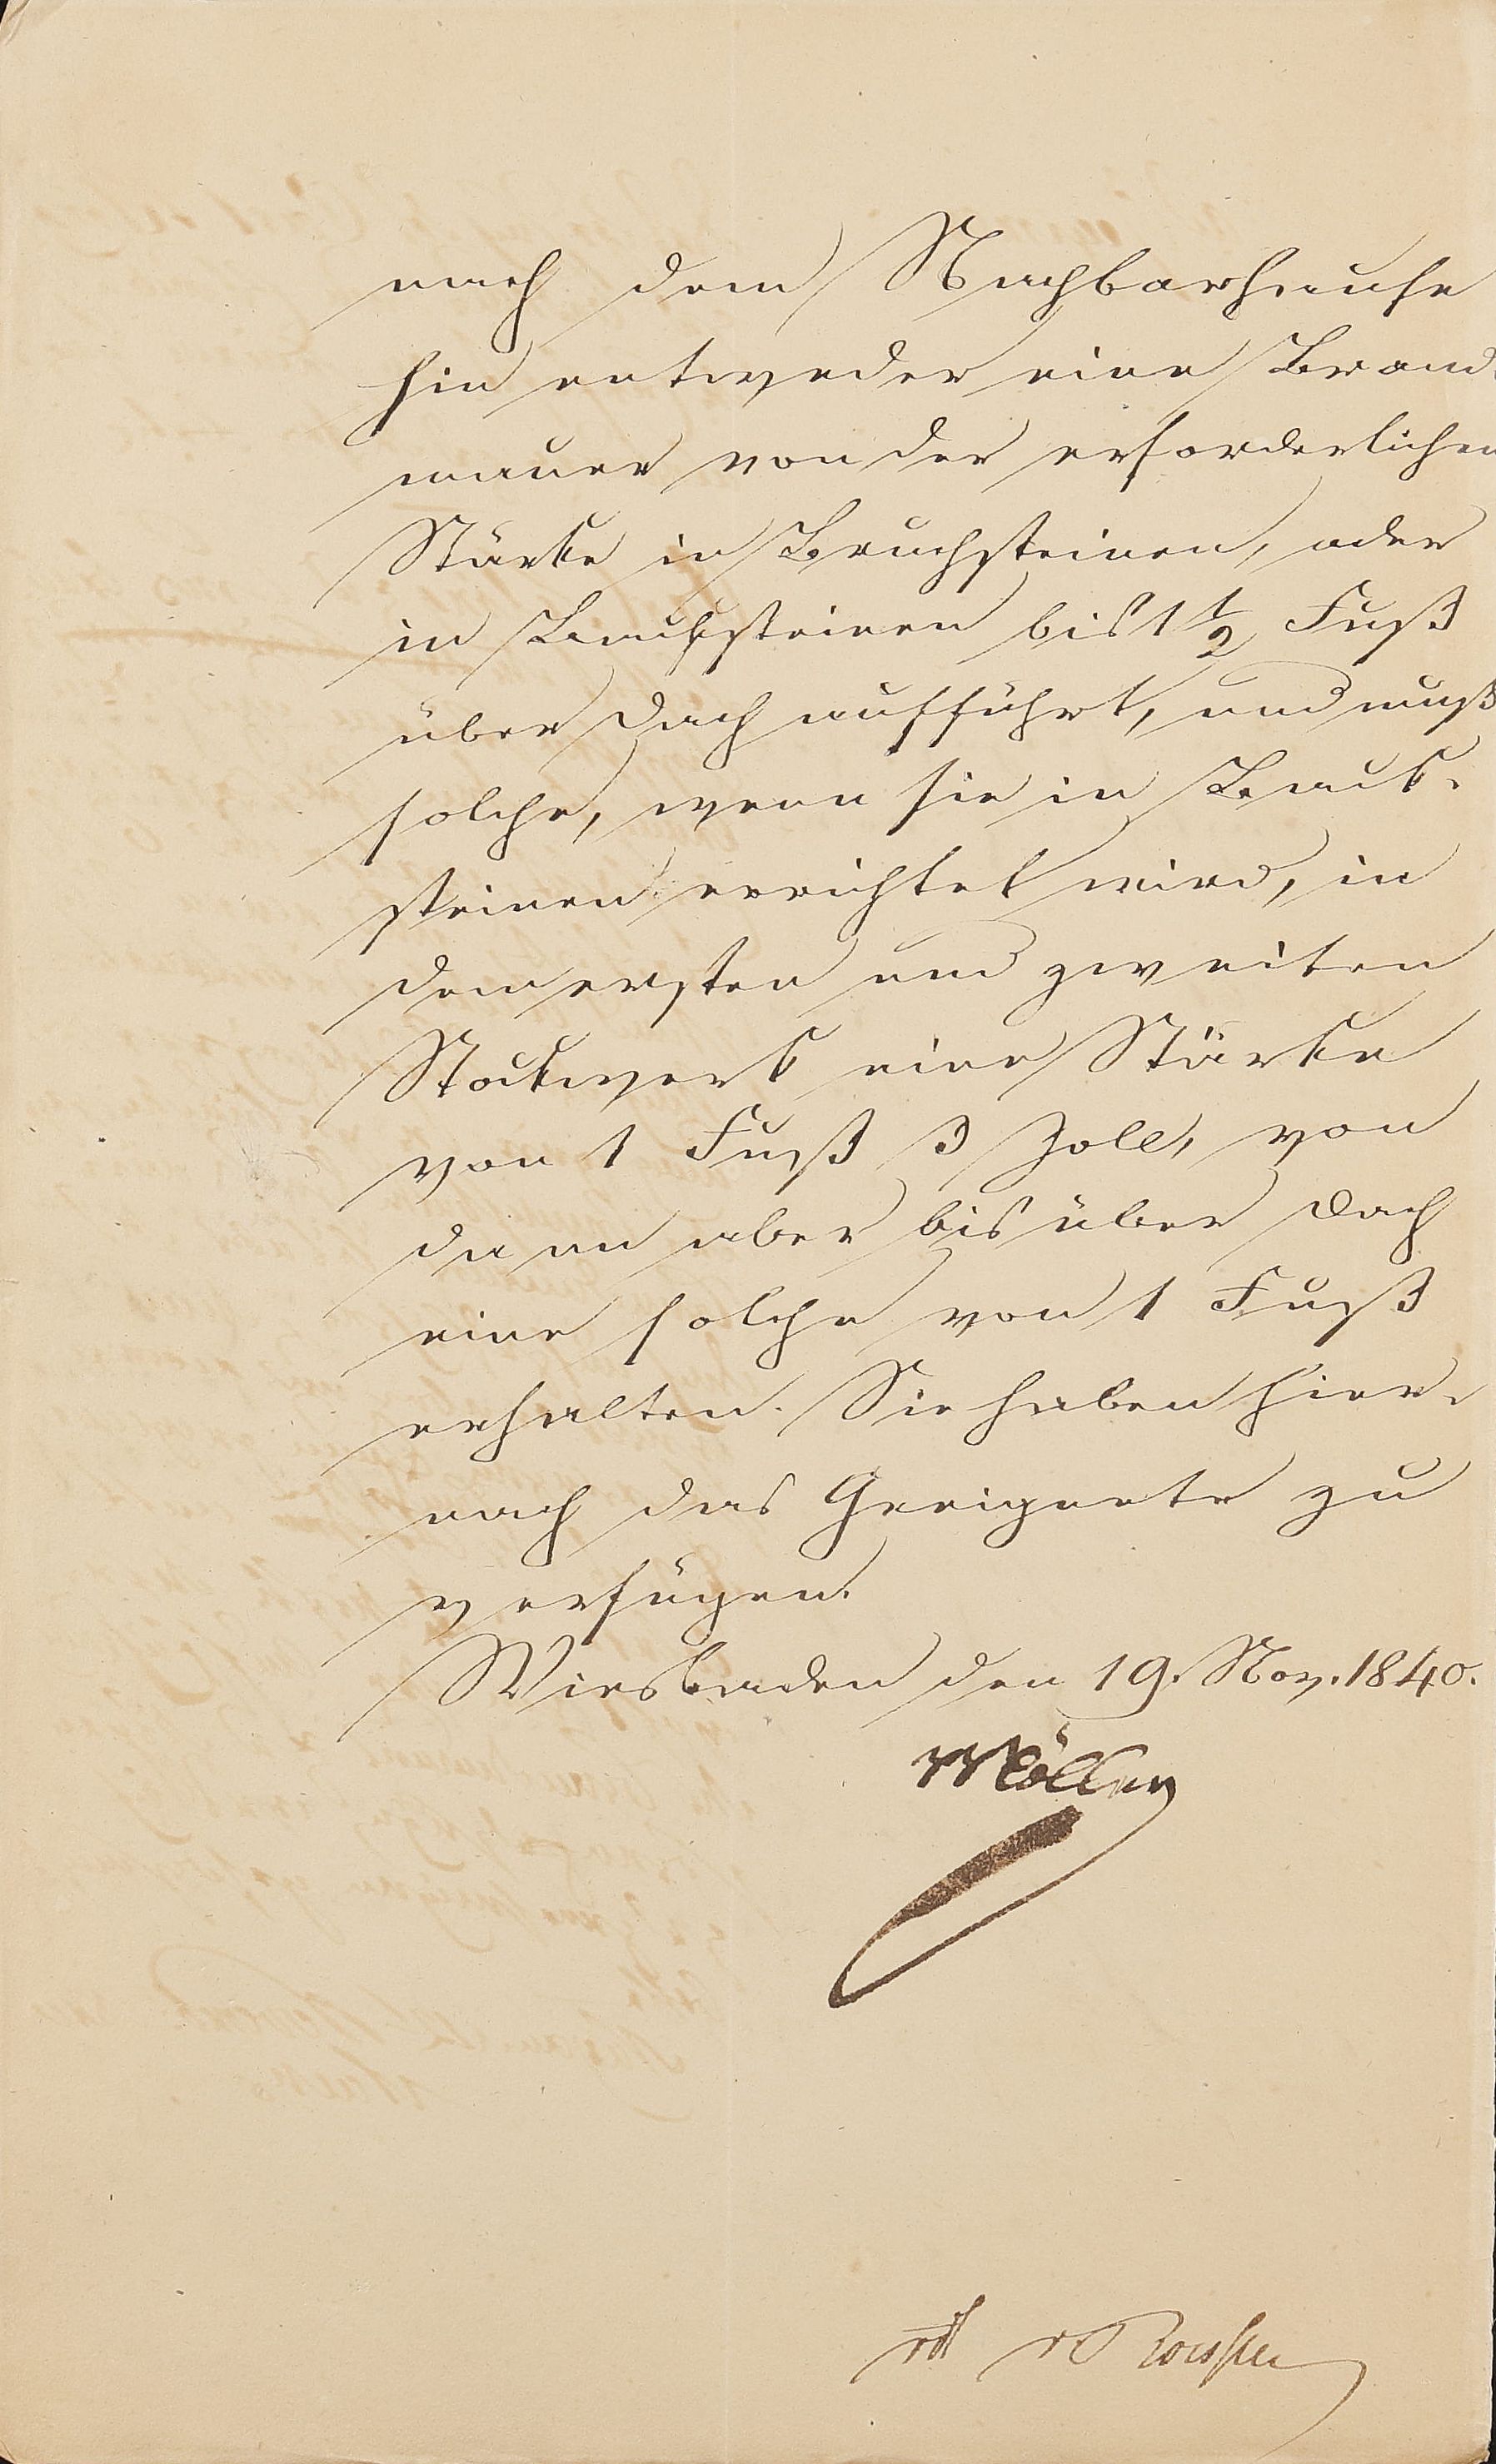 nach dem Nachbarhause
hin entweder eine Brand-
mauer von der erforderlichen
Stärke in Bruchsteinen, oder
in Backsteinen bis 1 1/2 Fuß
über Dach aufführt, und muß
solche, wenn sie in Back-
steinen errichtet wird, in
dem ersten und zweiten
Stockwerk eine Stärke
von 1 Fuß 3 Zoll, von
da an aber bis über Dach
eine solche von 1 Fuß
erhalten. Sie haben hier-
nach das Geeignete zu
verfügen.
Wiesbaden den 19. Nov. 1840.
Möller